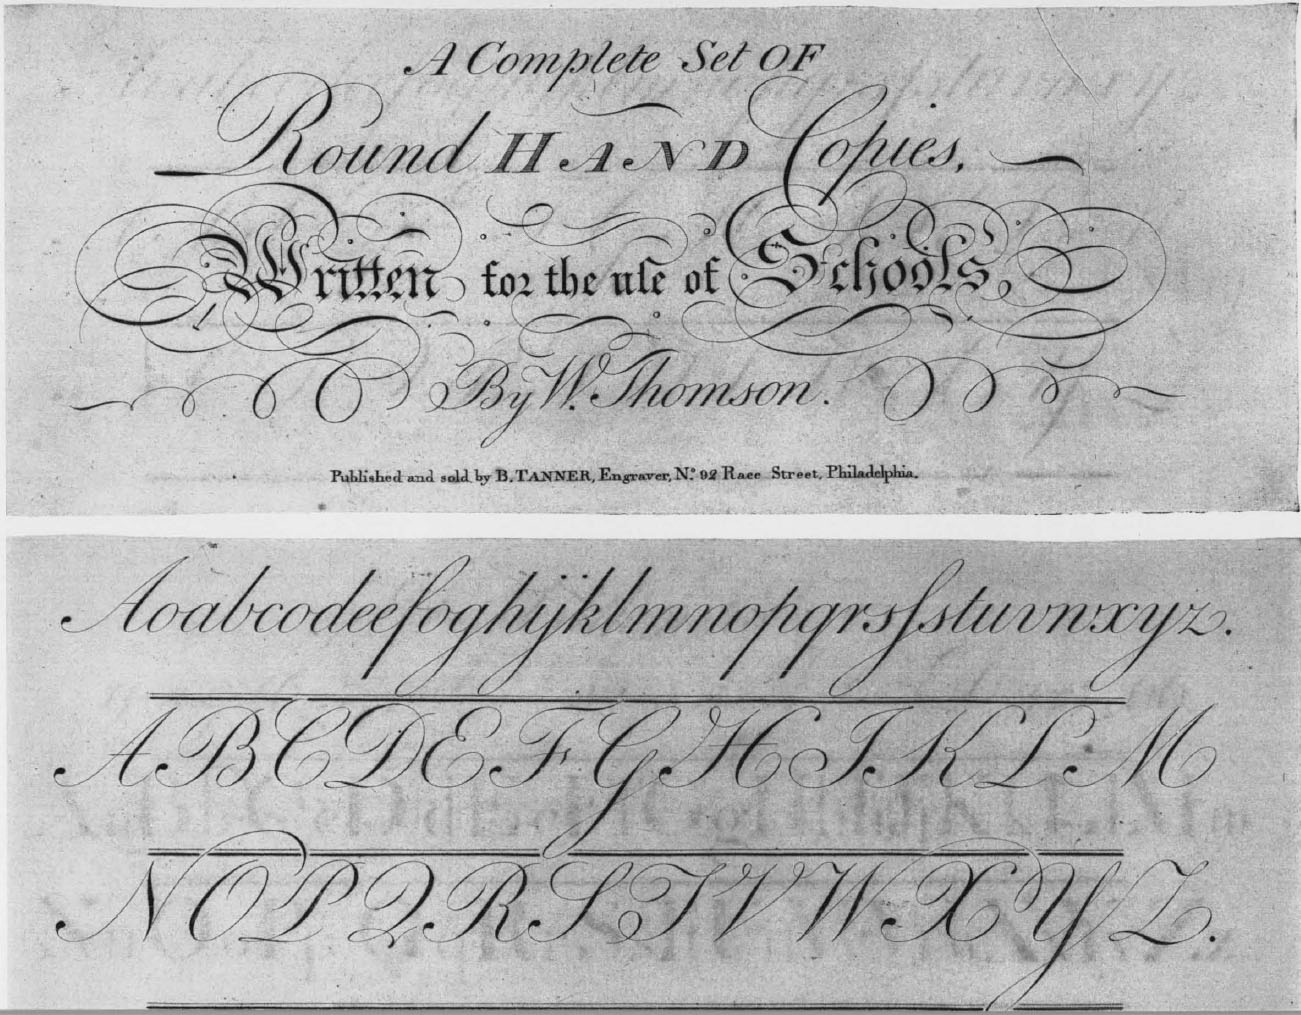 A Complete Set OF
Round HAND Copies,
Written for the uſe of Schools,
By W. Thomson.
Published and sold by B. TANNER, Engraver, No. 92 Race Street, Philadelphia.
Aoabcodeefoghijklmnopqrsſstuvwxyz.
ABCDEFGHIKLM
NOPQRSTVWXYZ.